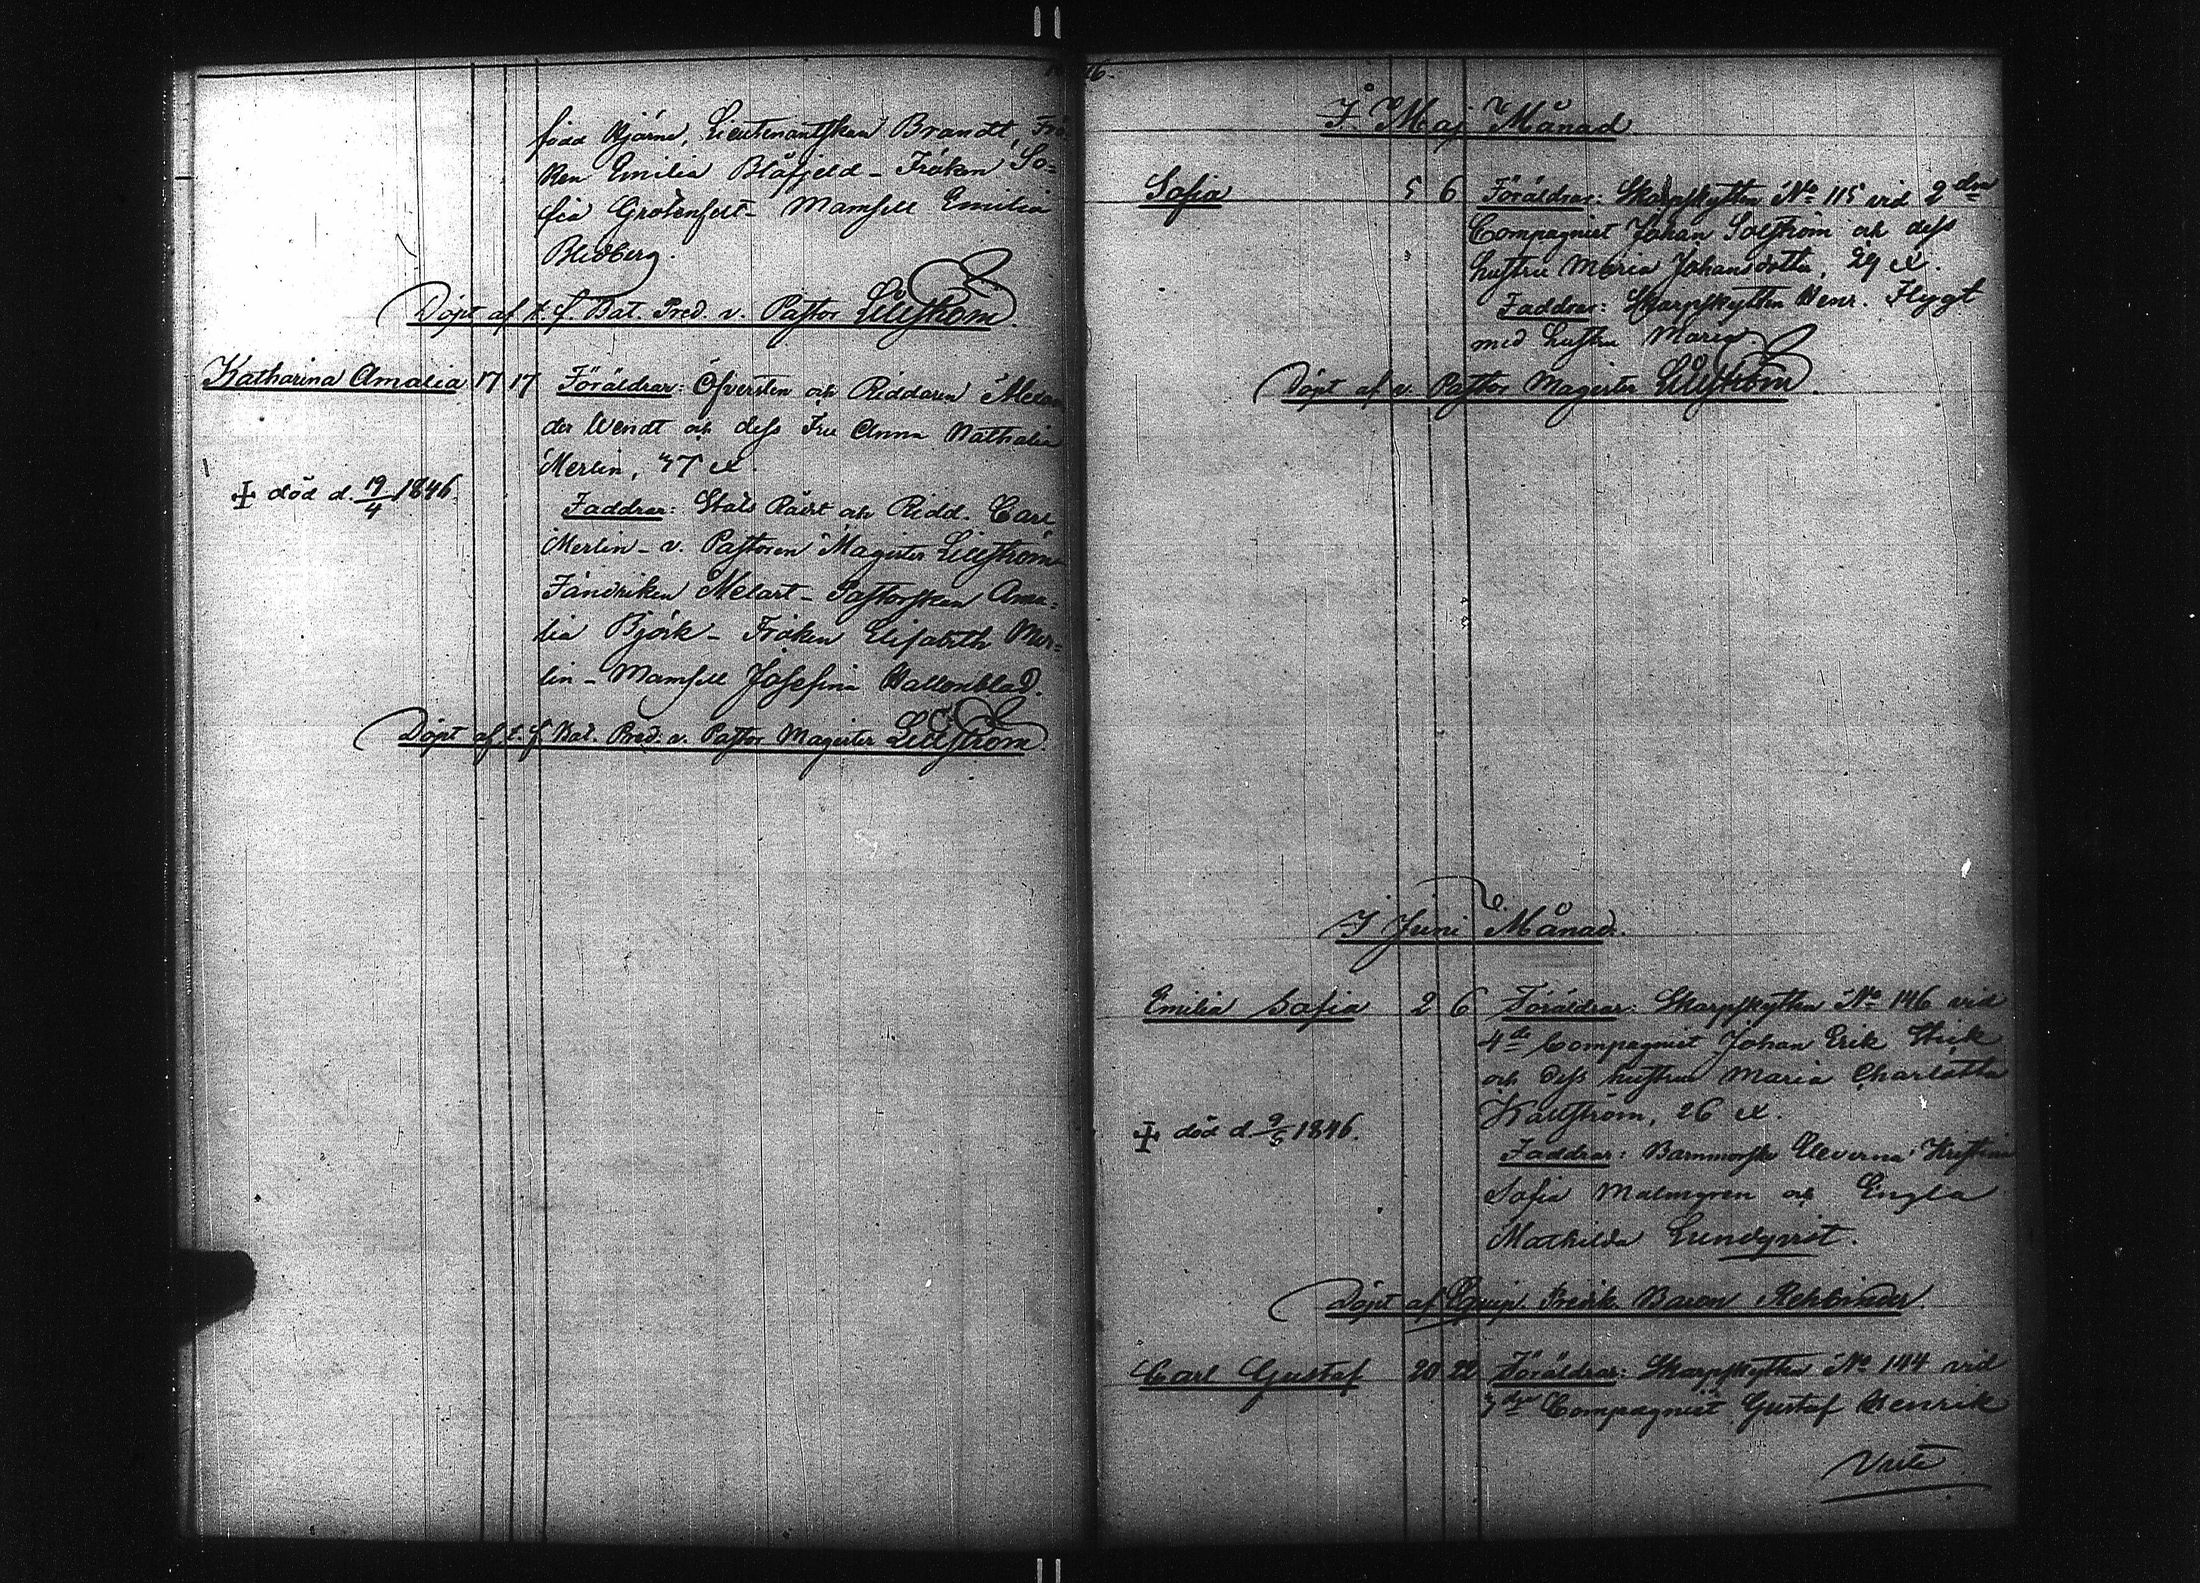 1846.
född Hjärne, Lieutenantskan Brandt, Frö-
ken Emilia Blåfjeld - Fröken So-
fia Grotenfelt - Mamsell Emilia
Blidberg.
Döpt af t. f. Bat. Pred. v. Pastor Lilljeström.
Katharina Amalia 17 17 Föräldrar: Öfversten och Riddaren Alexan
der Wendt och dess Fru Anna Nathalia
Merlin, 37 år.
✝ död d. 19/4 1846.
Faddrar: Stats Rådet och Ridd. Carl
Merlin - v. Pastoren Magister Lilljeström
Fändriken Melart - Pastorskan Ama-
lia Björk - Fröken Elisabeth Mer-
lin - Mamsell Josefina Hallonblad.
Döpt af t. f. Bat. Pred. v. Pastor Magister Lilljeström.
I Maj Månad
Sofia 5 6 Föräldrar: Skarpskytten No 115 vid 2dra
Compagniet Johan Solström och dess
hustru Maria Johansdotter, 29 år.
Faddrar: Skarpskytten Henr. Flygt
med hustru Maria.
Döpt af v. Pastor Magister Lilljeström.
I Juni Månad.
Emilia Sofia 2 6 Föräldrar: Skarpskytten No 146 vid
4de Compagniet Johan Erik
och dess hustru Maria Charlotta
Wallström, 26 år.
✝ död d. 9/6 1846.
Faddrar: Barnmorske Eleverna Kristina
Sofia Malmgren och Engla
Mathilda Lundqvist.
Döpt af Fredrik Baron Rehbinder.
Carl Gustaf 20 22 Föräldrar: Skarpskytten No 144 vid
3dje Compagniet Gustaf Henrik
Verte